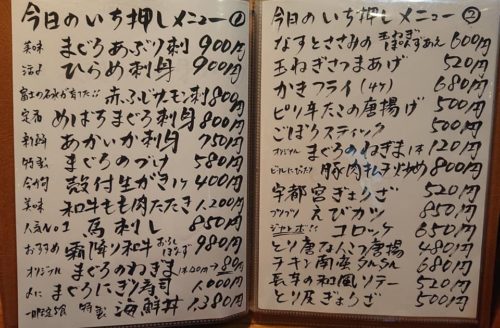 今日のいち押しメニュー①
美味 まぐろあぶり刺 900円
活〆 ひらめ刺身 900円
富士の名水が育てた!! 赤ふじサーモン刺 800円
定番 めばちまぐろ刺身 800円
新鮮 あかいか刺身 750円
特製 まぐろのづけ 580円
今が旬 殻付生がき1ケ 400円
美味 和牛もも肉たたき 1,200円
人気No1 馬刺し 850円
おすすめ 霜降り和牛 おろしぽんず 980円
オリジナル まぐろのねぎま
〆に まぐろにぎり寿司 1,000円
特製 海鮮丼 1,380円
今日のいち押しメニュー②
なすとささみの ぽんずあえ 600円
玉ねぎさつまあげ 520円
かきフライ(4ケ) 680円
ピリ辛たこの唐揚げ 500円
ごぼうスティック 500円
オリジナル まぐろのねぎま1本 120円
ビールにぴったり 豚肉キムチ炒め 800円
宇都宮ぎょうざ 520円
プリプリ えびカツ 580円
ジャンボ!! コロッケ 650円
とり唐なんこつ唐揚 480円
チキン南蛮タルタル 680円
長芋の和風ソテー 520円
とり皮ぎょうざ 500円